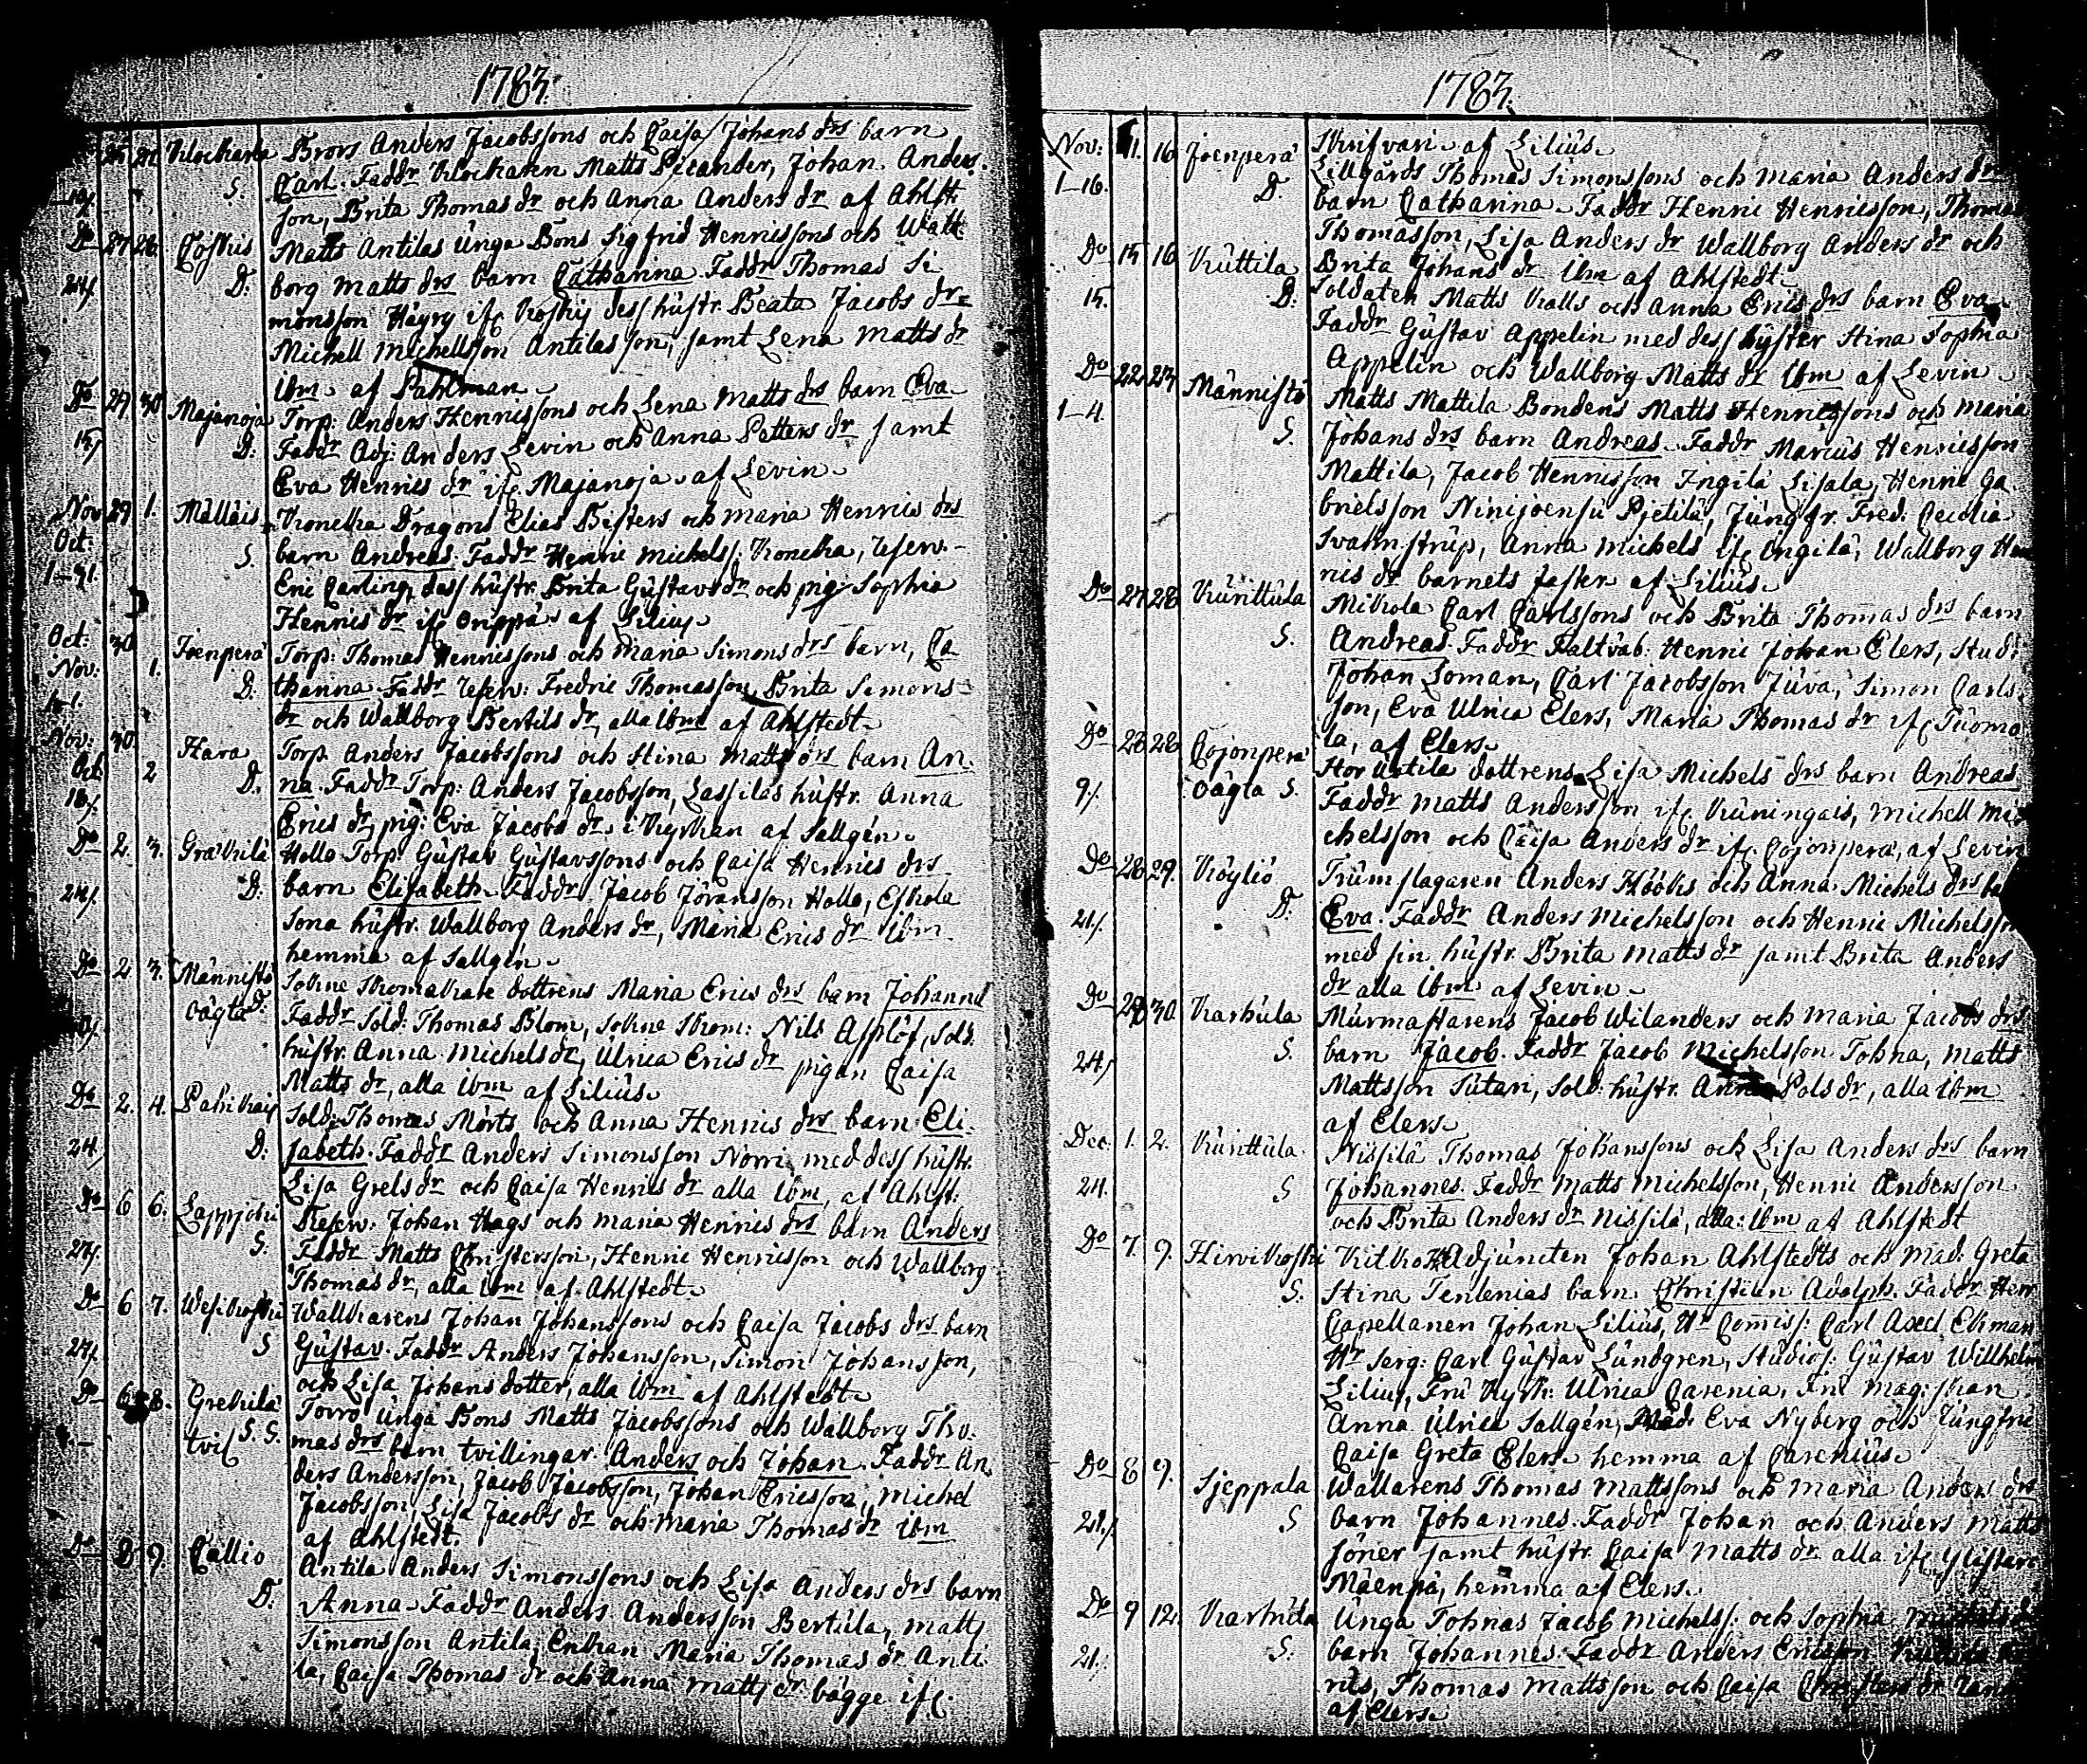 1783.
25 27 Klockarla Brors Anders Jacobssons och Caisa Johans drs barn
S. Carl. Faddr Klockaren Matts Picander, Johan Anders-
son, Brita Thomas dr och Anna Anders dr af Ahlst:
Do 27 28 Coskis Matts Antilas Unga Bons Sigfrid Henricssons och Wall
D. borg Matts drs barn Catharina. Faddr Thomas Si
monsson Häyry Koskis dess hustr. Beata Jacobs dr
Michell Michellsson Antilas son, samt Lena Matts dr
ibm af Pahlman
Do 29 30 Majanoja Torp: Anders Henricssons och Lena Matts drs barn Eva
D. Faddr Adj: Anders Levin och Anna Petters dr samt
Eva Henrics dr Majanoja af Levin
Nov 29 1. Mälläis Dragons Elias och Maria Henrics drs
Oct: S. barn Andreas. Faddr Henric Michelss: reserv.
Eric Carling, dess hustr. Brita Gustavs dr och pig: Sophia
Henrics dr Orippä af Lilius
Oct: 30 Joenperä Torp: Thomas Henricssons och Maria Simons drs barn, Ca
Nov: 1. D. tharina. Faddr reserv: Fredric Thomasson, Brita Simons
dr och Wallborg Bertils dr, alla ibm af Ahlstedt
Nov: 30 Hara Torp. Anders Jacobssons och Stina Matts drs barn An-
Oct 2 D. na. Faddr Torp: Anders Jacobsson, Lassilas hustr. Anna
Erics dr, pig: Eva Jacobs dr i Kyrkan af Sallgén
Do 2. 3. Gräkilä Hollo Torp: Gustav Gustavssons och Caisa Henrics drs
24/ D. barn Elisabeth. Faddr Jacob Jöransson Hollo, Eskola
Sona hustr. Wallborg Anders dr, Maria Erics dr ibm
hemma af Sallgén
Do 2 3. Männistö Sokne dottrens Maria Erics drs barn Johanna
oägta D. Faddr Sold: Thomas Blom, Sokne Skom: Nils Applöf, Sold.
hustr. Anna Michels dr, Ulrica Erics dr pigan Caisa
Matts dr, alla ibm af Lilius
Do 2. 4. Sold: Thomas Mörts och Anna Henrics drs barn Eli-
24/ D. sabeth. Faddr Anders Simonsson Norri med dess hustr.
Lisa Grels dr och Caisa Henrics dr alla ibm, af Ahlst:
Do 6 6. Lappjoki Reserv: Johan Hags och Maria Henrics drs barn Anders
S. Faddr Matts Christersson, Henric Henricsson och Wallborg
Thomas dr, alla ibm af Ahlstedt
Do 6 7. Wesikoski Wallkarens Johan Johanssons och Caisa Jacobs drs barn
24/ S Gustav. Faddr Anders Johansson, Simon Johansson,
och Lisa Johans dotter, alla ibm af Ahlstedt
Do 6 8. Grekilä Torro Unga Bons Matts Jacobssons och Wallborg Tho-
tvil S. S. mas drs barn tvillingar. Anders och Johan. Faddr An-
ders Andersson, Jacob Jacobsson, Johan Ericsson, Michel
Jacobsson, Lisa Jacobs dr och Maria Thomas dr ibm
af Ahlstedt.
Do 8 9. Callio Antila Anders Simonssons och Lisa Anders drs barn
D. Anna. Faddr Anders Andersson Bertula, Matts
Simonsson Antila, Enkan Maria Thomas dr Anti
la, Caisa Thomas dr och Anna Matts dr bägge
1783.
af Lilius
Nov: 11. 16 Joenperä Lillgårds Thomas Simonssons och Maria Anders dr
1-16. D. barn Catharina. Faddr Henric Henricsson, Thomas
Thomasson, Lisa Anders dr Wallborg Anders dr och
Brita Johans dr ibm af Ahlstedt
Do 15 16 Kuttila Soldaten Matts Kalls och Anna Erics drs barn Eva
15. D. Faddr Gustav Appelin med dess syster Stina Sophia
Appelin och Wallborg Matts dr ibm af Levin
Do 22 23 Männistö Matts Mattila Bondens Matts Henricssons och Maria
1-4. S. Johans drs barn Andreas. Faddr Marcus Henricsson
Mattila, Jacob Henricsson Ingilä Lisala, Henric Ga
brielsson Ninijoensu Pjetilä, Jungfr. Fred: Cecilia
Svahnstrup, Anna Michels Ingilä, Wallborg Hen
rics dr barnets faster af Lilius
Do 27 28 Kurittula Mikola Carl Carlssons och Brita Thomas drs barn
S. Andreas. Faddr Faltväb: Henric Johan Elers, Stud:
Johan Loman, Carl Jacobsson Juva, Simon Carls-
son, Eva Ulrica Elers, Maria Thomas dr Tuomo
la, af Elers
Do 28 28 Cojonperä Stor Antila dottrens Lisa Michels drs barn Andreas
9/. oägta S. Faddr Matts Andersson Kuningais, Michell Mi
chelsson och Caisa Anders dr Cojonperä, af Levin
Do 28 29. Köyliö Trumslagaren Anders Hööks och Anna Michels drs
21/. D. Eva. Faddr Anders Michelsson och Henric Michelsson
med sin hustr. Brita Matts dr samt Brita Anders
dr alla ibm af Levin
Do 29 30 Karhula Murmästarens Jacob Wilanders och Maria Jacobs drs
24/ S. barn Jacob. Faddr Jacob Michelsson Tohna, Matts
Mattsson Sutari, Sold: hustr. Anna Pols dr, alla ibm
af Elers
Dec: 1. 2. Kurittula Nissilä Thomas Johanssons och Lisa Anders drs barn
24. S Johannes. Faddr Matts Michelsson, Henric Andersson
och Brita Anders dr Nissilä, alla ibm af Ahlstedt
Do 7. 9. Hirvikoski Adjuncten Johan Ahlstedts och Mad: Greta
S. Stina Tenlenias barn Christian Adolph. Faddr Herr
Capellanen Johan Lilius, Hr Comiss: Carl Axel Ekman
Hr Serg: Carl Gustav Lundgren, Studios: Gustav Willhelm
Lilius, Fru Kyrk: Ulrica Carenia, Fru Mag:
Anna Ulrica Sallgén, Mad: Eva Nyberg och Jungfru
Caisa Greta Elers hemma af Carenius
Do 8 9. Sjeppala Wallarens Thomas Mattssons och Maria Anders drs
21./. S barn Johannes. Faddr Johan och Anders Matts
söner samt hustr. Caisa Matts dr alla
Mäenpä, hemma af Elers
Do 9 12. Karhula Unga Tohnas Jacob Michelss: och Sophia
21. S. barn Johannes. Faddr Anders Ericsson
Thomas Mattsson och Caisa Christers dr
af Elers